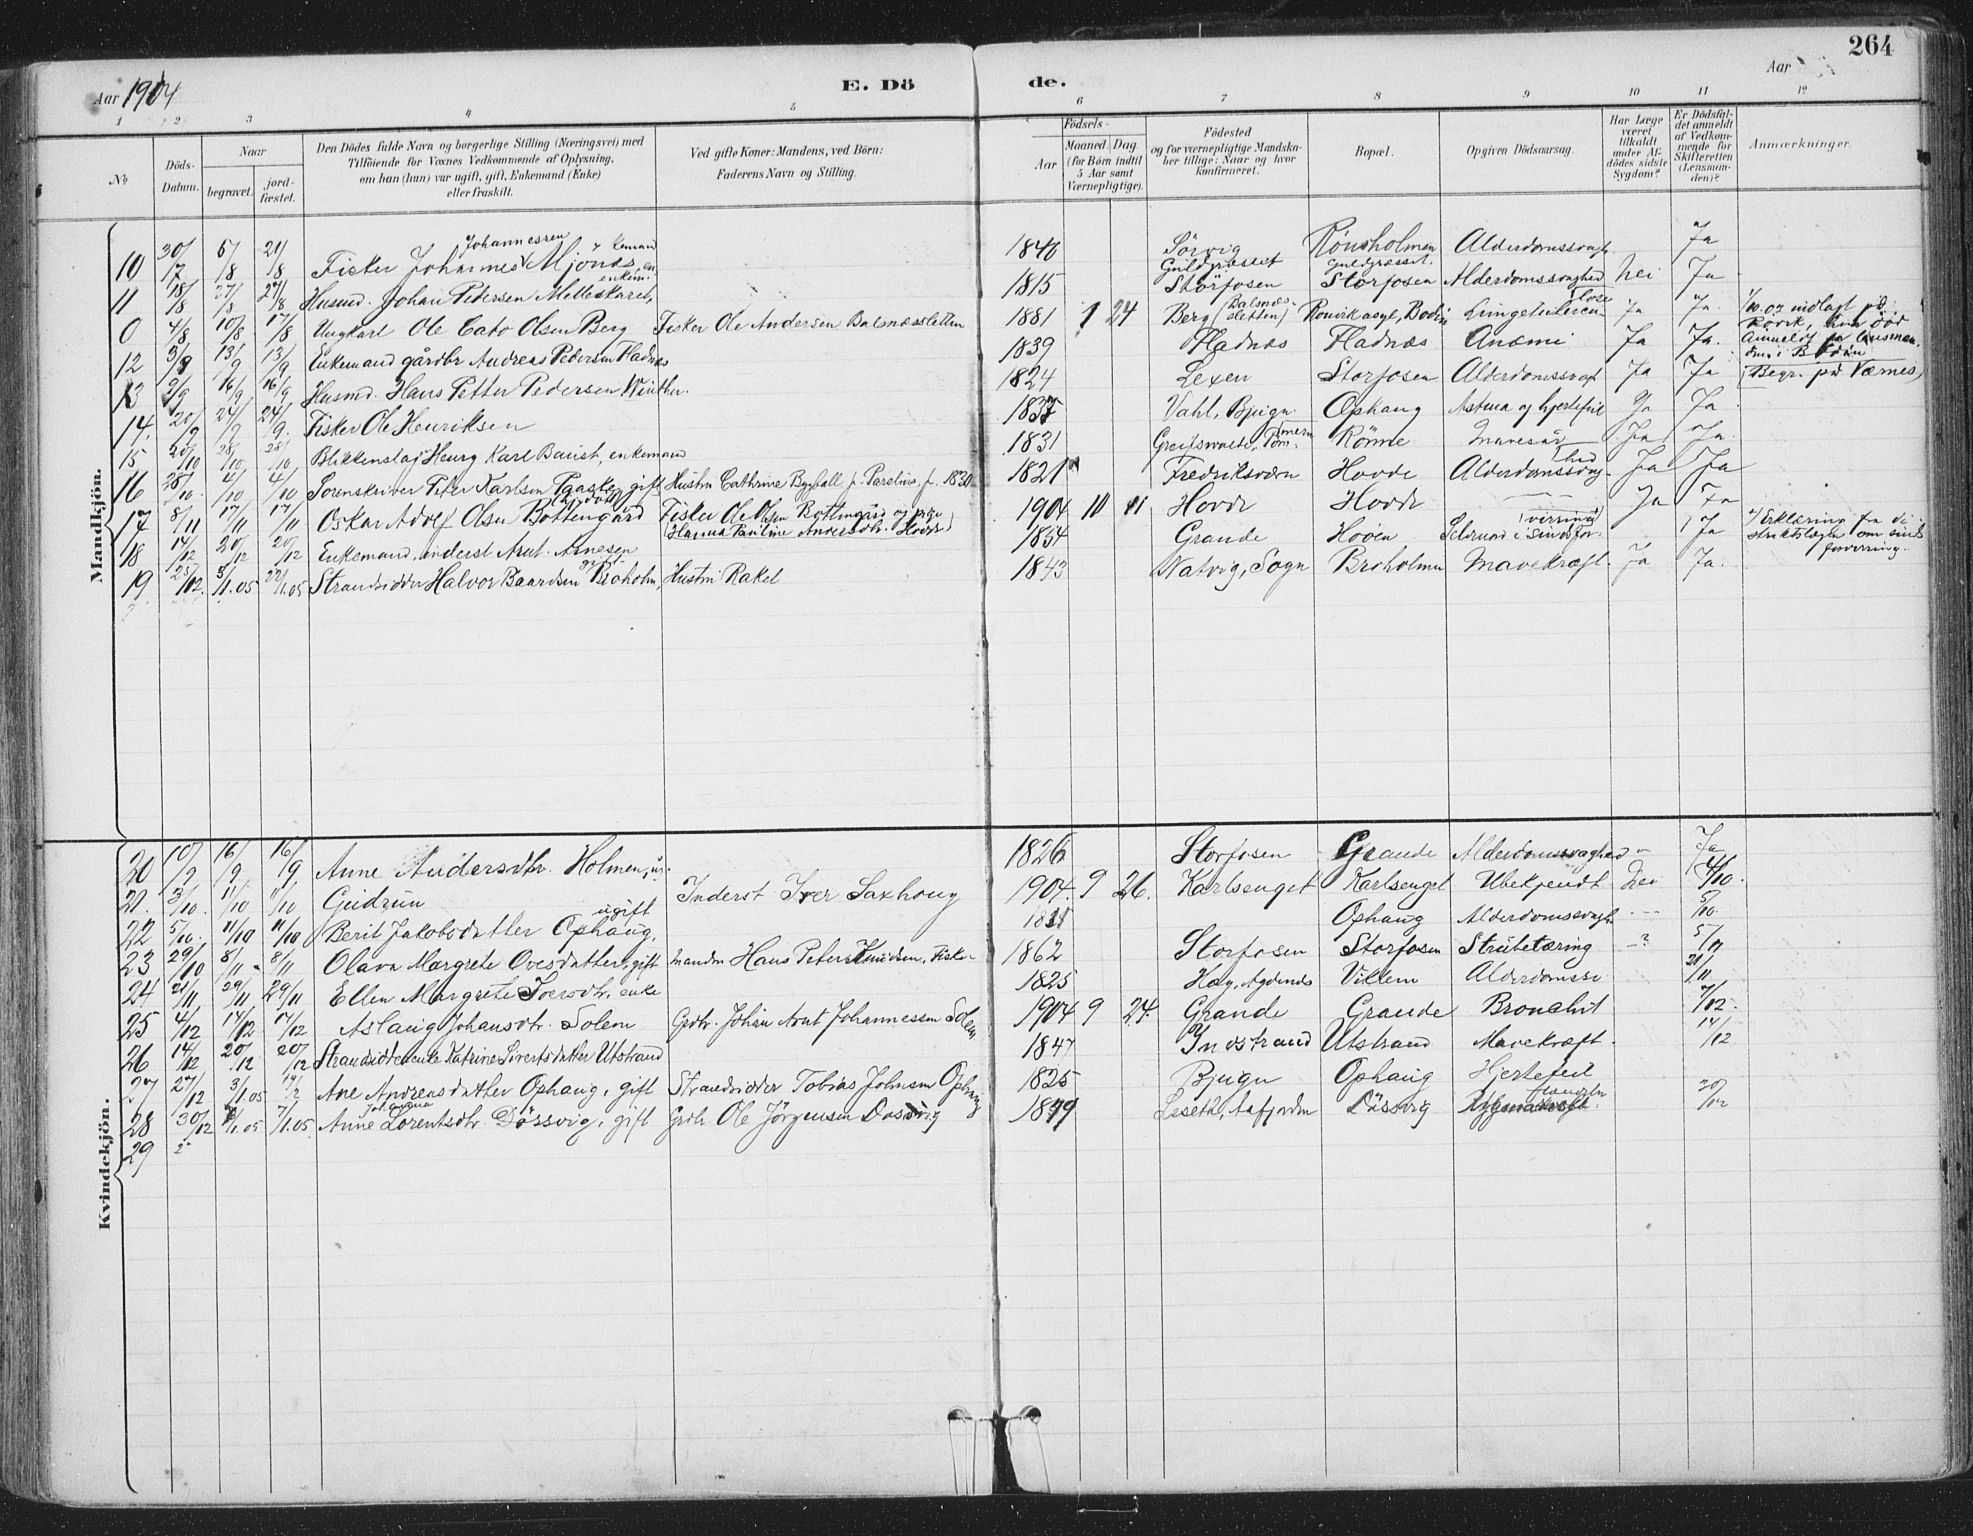 264
Aar 1904
E. Dö de.
Aar
1 2 3 4 5 6 7 8 9 10 11 12
No
Döds-Datum.
Naar
begravet.
jord-fæstet.
Den Dödes fulde Navn og borgerlige Stilling (Næringsvei) med
Tilföiende for Voxnes Vedkommende af Oplysning,
om han (hun) var ugift, gift, Enkemand (Enke)
eller fraskilt.
Ved gifte Koner: Mandens, ved Börn:
Faderens Navn og Stilling.
Födsels-
Aar
Maaned. Dag.
(for Börn indtil
5 Aar samt
Værnepligtige).
Födested
og for værnepligtige Mandska-
ber tillige: Naar og hvor
konfirmeret.
Bopæl.
Opgiven Dödsaarsag.
Har Læge
været
tilkaldt
under Af-
dödes sidste
Sygdom?
Er Dödsfal-
det anmeldt
af Vedkom-
mende for
Skifteretten
(Lensman-
den)?
Anmærkninger.
Mandkjön.
10 30/7 6/8 21/8 Fisker Johannes Johannessen Mjönes, enkemand 1840 Sörvig Rönsholmen Ja
11 18/8 27/8 27/8 Husmd. Johan Pedersen Melleskaret, enkem. 1815 Guldgræsset Storfosen Guldgræsset, Storfosen Alderdomssvaghed Nei Ja
0 4/8 10/8 17/8 Ungkarl Ole Cato Olsen Berg Fisker Ole Andersen Balsnæssletten 1881 1 24 Berg (Balsnæs-sletten) Rönvik asyl, Bodin Ja Ja
12 3/9 13/9 13/9 Enkemand gårdbr Andreas Pedersen Fladnæs 1839 Fladnæs Fladnæs Anæmi Ja Ja.
13 9/9 16/9 16/9 Husmd. Hans Petter Pedersen Winther. 1824 Lexen Storfosen Ja Ja (Begr. på Værnes)
14. 20/9 24/9 24/9. Fisker Ole Henriksen 1837 Vahl, Bjugn. Ophaug Astma og hjertefeil Ja Ja
15 20/10 28/10 28/10 Blikkenslag. Henry Karl Baust, enkemand 1831 Greifswalde, Pommern Rönne Mavesår Ja Ja.
16 28/10. 4/10 4/10 Sorenskriver Peter Karlsen gift Hustru Cathrine f. Parelius, f. 1830 1821 Fredriksværn Hovde Ja Ja
17 8/11 17/11 17/11 Oskar Adolf Olsen Bottengård Fisker Ole Olsen Bottengård og pige (Hanna Pauline Andersdtr. Hovde) 1904 10 11 Hovde Hovde Ja Ja
18 14/12 20/12 20/12 Enkemand, inderst Arnt Arnesen 1854 Grande Hovén Ja Erklæring fra di-striktslægen om sinds forvirring.
19 25/12. 3/1.05 22/1.05 Strandsidder Halvor Baardsen Broholm, gift Hustru Rakel 1843 Natvig, Sogn Broholmen Mavekræft. Ja Ja.
Kvindekjön.
20 10/9 16/9 16/9 Anne Andersdtr. Holmen, 1826 Storfosen Grande Alderdomssvaghed Ja
21. 3/10. 11/10 11/10 Gudrun Inderst Iver Saxhaug 1904. 9 26. Karlsenget Karlsenget Ubekjendt Nei 4/10.
22 5/10. 11/10 11/10 Berit Jakobsdatter Ophaug, ugift Ophaug 5/10.
23 29/10 8/11 8/11 Olava Margrete Ovesdatter, gift manden Hans Peter Knudsen, Fisker 1862 Storfosen Storfosen Strubetæring -? 5/11
24 21/11 29/11 29/11 Ellen Margrete Iversdtr. enke 1825 Viklem 21/11.
25 4/12 17/12 17/12 Aslaug Johansdtr. Solem Grdbr. Johan Arnt Johannessen Solem 1904 9 24. Grande Grande Bronchit 7/12.
26 14/12 20/12 20/12 Strandsidderenke Katrine Sivertsdatter Utstrand 1847 Indstrand Utstrand Mavekræft. 14/12
27 27/12 3/1.05 Ane Andreasdatter Ophaug, gift Strandsidder Tobias Johnsen Ophaug 1825 Bjugn Ophaug Hjertefeil
28 30/12 7/1.05 7/1.05. Anne Johanna Lorentsdtr. Dössvig, gift Grdbr. Ole Jörgensen Dössvig Aafjorden Dössvig 30/12
29